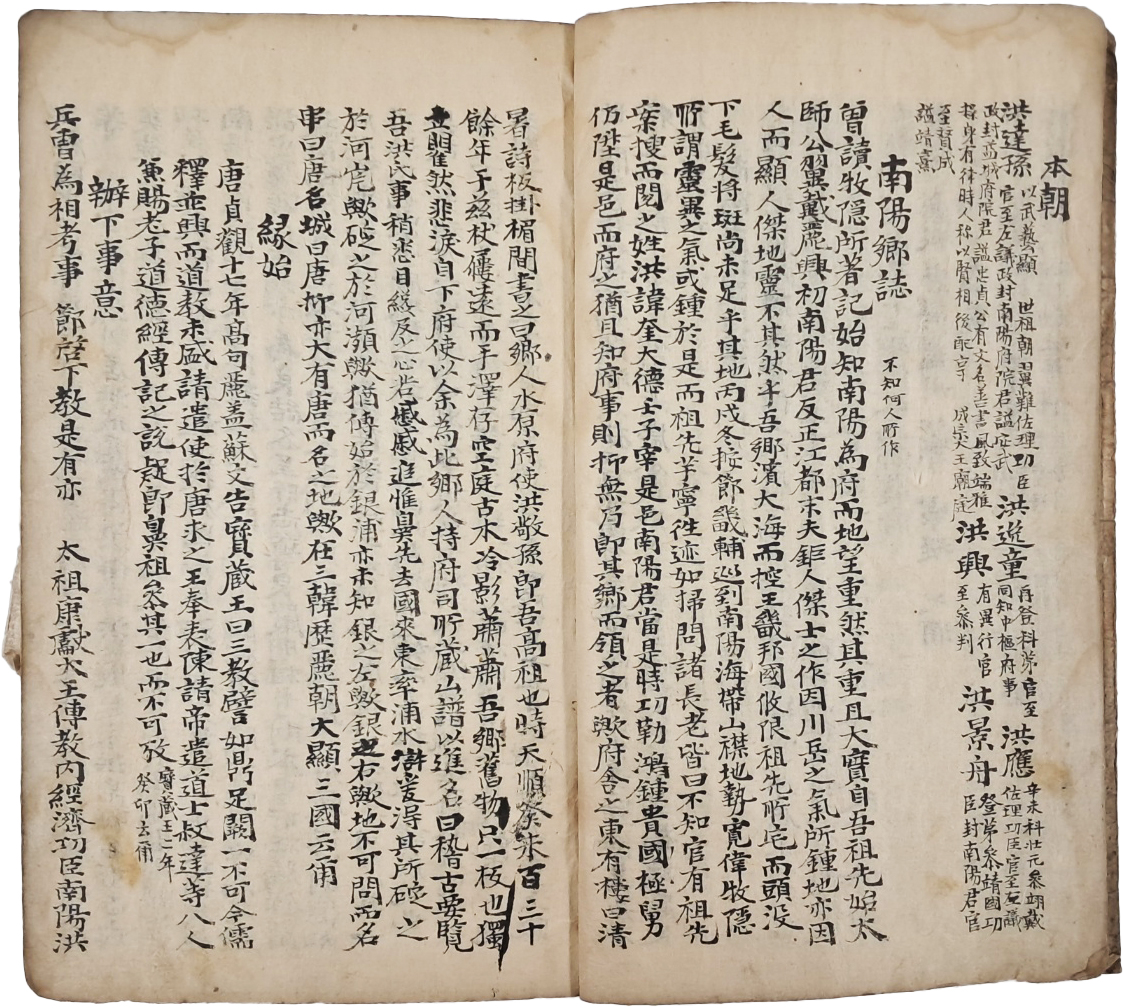 本朝
洪達孫 以武藝顯 世祖朝翼難佐理功臣 官至左議政封南陽府院君謚安武 洪逸童 再登科第官至同知中樞府事 洪應 辛未科壯元參翊戴佐理功臣官至左議
政封益城府院君謚忠貞公有文名善書風致端雅持身有律時人称以賢相後配享 成宗大王廟庭 洪興 有異行官至參判 洪景舟 登第參靖國功臣封南陽君官
至贊成謚靖熹
南陽鄉誌 不知何人所作
曽讀牧隱所著記始知南陽為府而地望重然其重且大實自吾祖先始太
師公翼戴麗興初南陽君反正江都末夫鉅人傑士之作因川岳之氣所鍾地亦因
人而顯人傑地靈不其然乎吾鄉濱大海而控王畿邦國攸限祖先所宅而頭没
下毛髮将斑尚未足乎其地丙戌冬按節畿輔巡到南陽海帶山襟地勢寛偉牧隱
所謂靈異之氣或鍾於是而祖先芋寧徃迹如掃問諸長老皆曰不知官有祖先
案搜而閱之姓洪諱奎大德壬子宰是邑南陽君當是時功勒鴻鍾貴國極舅
仍陞是邑而府之猶且知府事則抑無乃即其鄉而領之者歟府舍之東有樓曰清
暑詩板掛楣間書之曰鄉人水原府使洪敬孫即吾高祖也時天順癸未百三十
餘年于玆杖屨遠而手澤存空庭古木冷影蕭蕭吾鄉舊物只一板也獨
立瞿然悲淚自下府使以余為此鄉人持府司所蔵山譜以進名曰稽古要覧
吾洪氏事稍悉目綴反之心若慼慼追惟鼻先去國來東率浦水滸爰得其所碇之
於河宅歟碇之於河瀕歟猶傳始於銀浦亦未知銀之左歟銀之右歟地不可問而名
串曰唐名城曰唐抑亦大有唐而名之地歟在三韓歴麗朝大顯三國云甭
縁始
唐貞觀十七年髙句麗盖蘇文告寳蔵王曰三教譬如鼎足闕一不可今儒
釋並興而道教未盛請遣使於唐求之王奉表陳請帝遣道士叔達等八人
兼賜老子道德經傳記之説疑即鼻祖參其一也而不可攷 寳蔵王二年癸卯云甭
辦下事意
兵曹為相考事 節啓下教是有亦 太祖康獻大王傳教内經濟功臣南陽洪